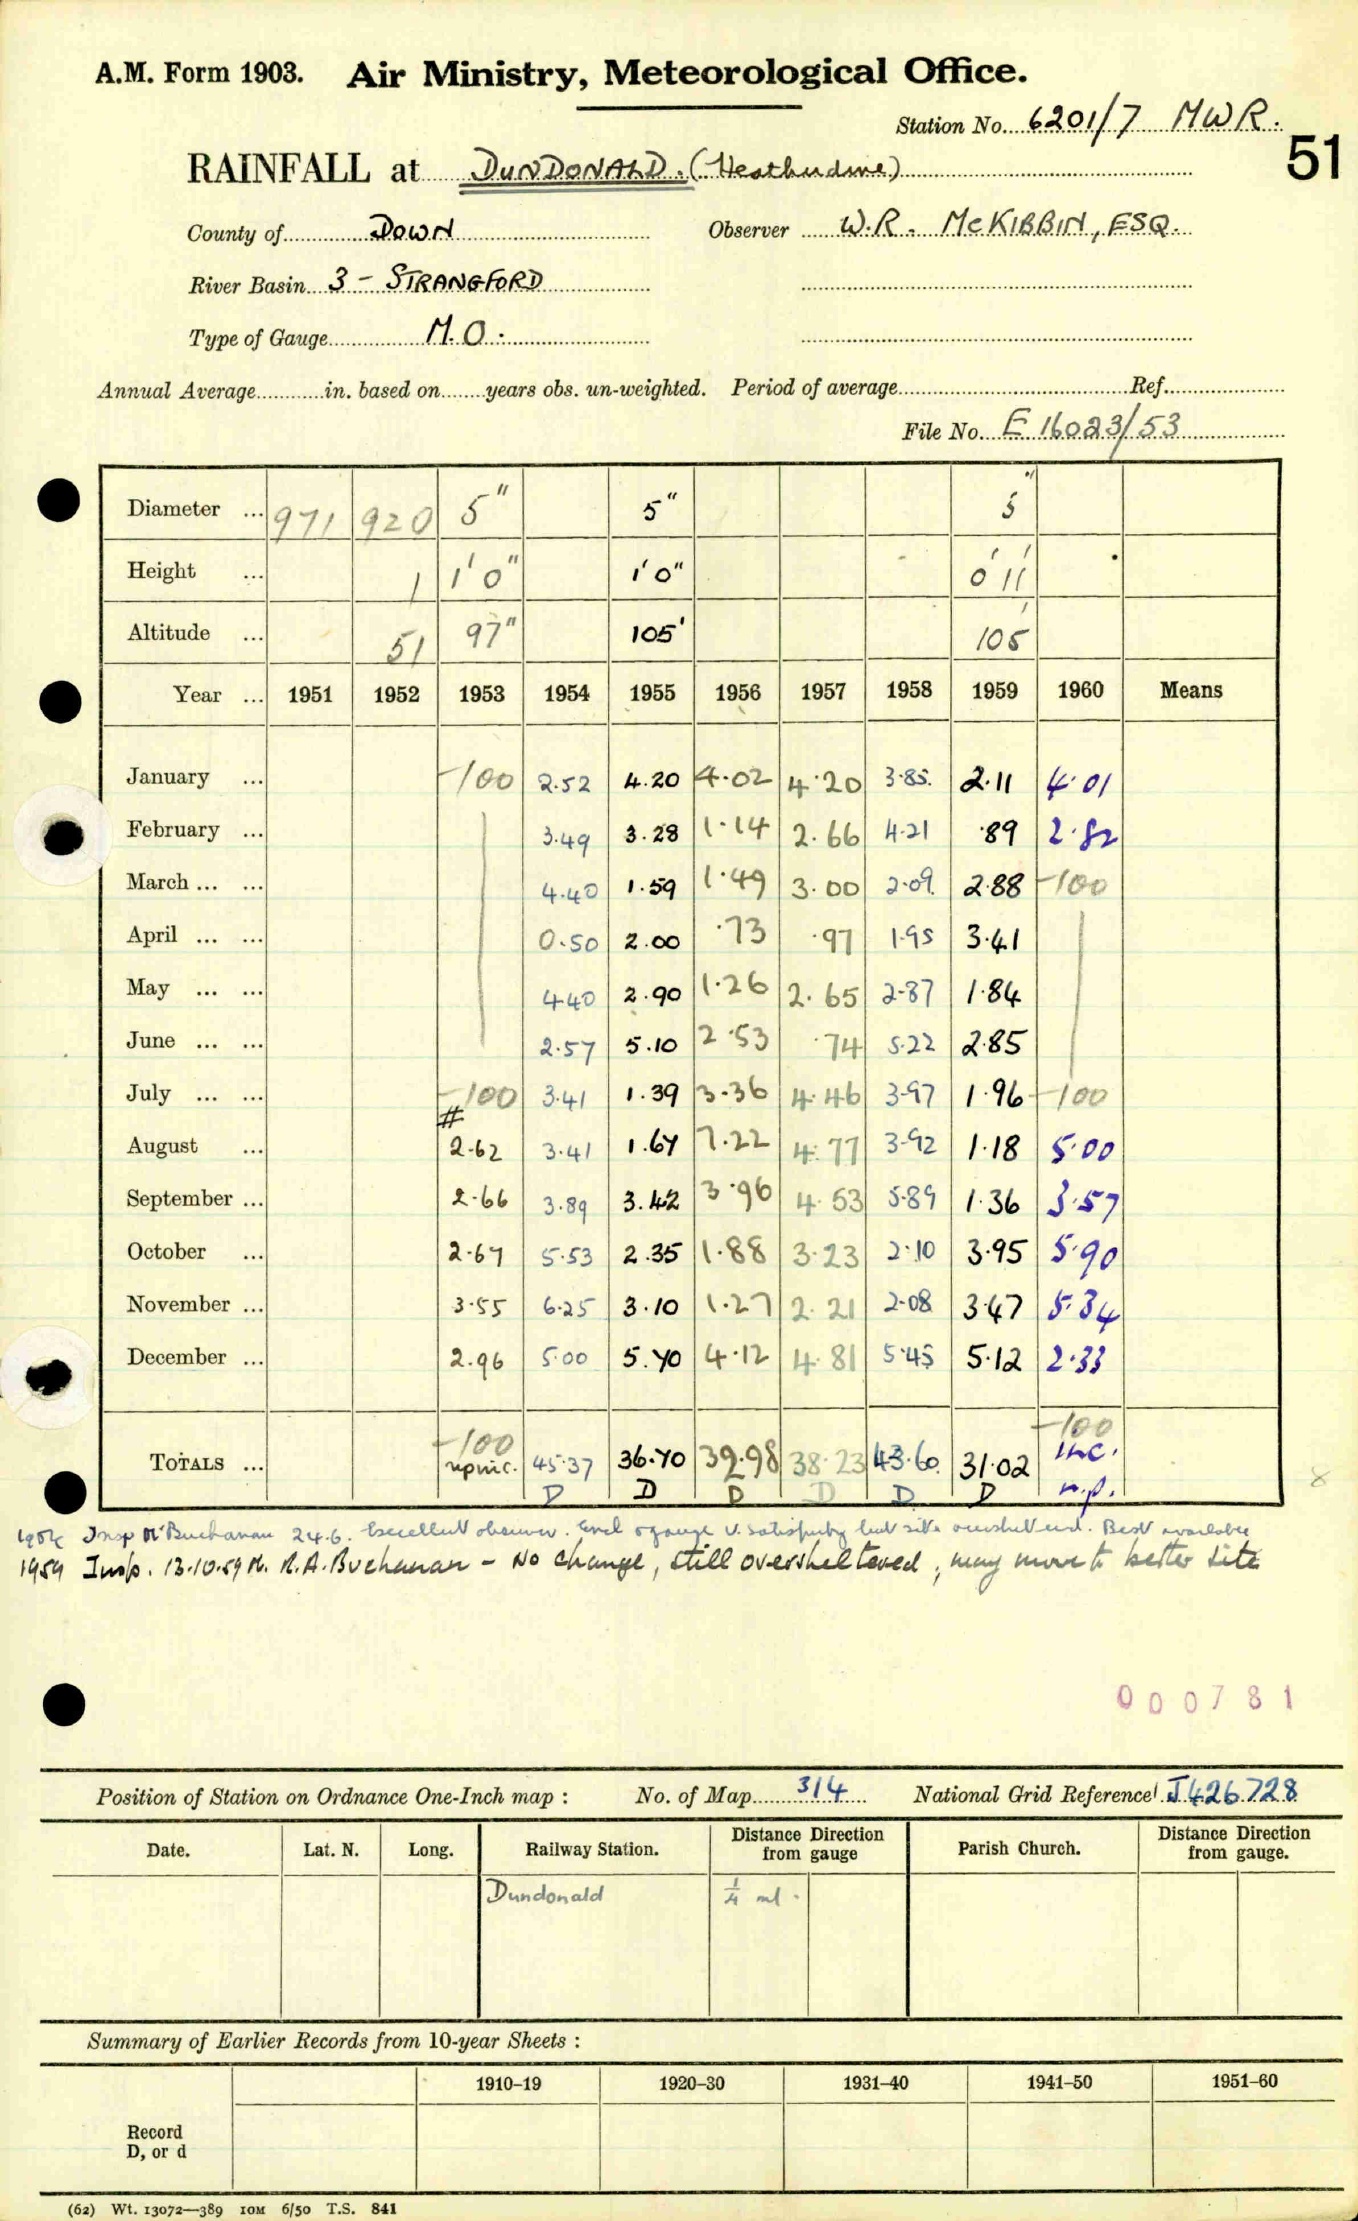 A.M. Form 1903. Air Ministry, Meteorological Office.
Station No. 6201/7 MWR.
51
RAINFALL at DUNDONALD.
County of DOWN Observer W.R. McKIBBIN, ESQ.
River Basin 3 - STRANGFORD
Type of Gauge M.O.
Annual Average in. based on years obs. un-weighted. Period of average Ref.
File No. E 16023/53
Diameter ... 971 920 5" 5" 5"
Height ... 1 1'0" 1'0" 0'11'
Altitude ... 51 97" 105' 105'
Year ... 1951 1952 1953 1954 1955 1956 1957 1958 1959 1960 Means
January ... -100 2.52 4.20 4.02 4.20 3.85. 2.11 4.01
February ... 3.49 3.28 1.14 2.66 4.21 .89 2.82
March ... ... 4.40 1.59 1.49 3.00 2.09. 2.88 -100
April ... ... 0.50 2.00 .73 .97 1.95 3.41
May ... ... 4.40 2.90 1.26 2.65 2.87 1.84
June ... ... 2.57 5.10 2.53 .74 5.22 2.85
July ... ... -100 3.41 1.39 3.36 4.46 3.97 1.96 -100
#
August ... 2.62 3.41 1.67 7.22 4.77 3.92 1.18 5.00
September ... 2.66 3.89 3.42 3.96 4.53 5.89 1.36 3.57
October ... 2.67 5.53 2.35 1.88 3.23 2.10 3.95 5.90
November ... 3.55 6.25 3.10 1.27 2.21 2.08 3.47 5.34
December ... 2.96 5.00 5.70 4.12 4.81 5.45 5.12 2.33
-100 -100
TOTALS ... 45.37 36.70 32.98 38.23 43.60. 31.02 inc.
D D D D D D n.p.
1954 Insp Mr Buchanan 24.6. Excellent observer. v. satisfactory but site oversheltered. Best available
1959 Insp. 13.10.59 Mr. R.A. Buchanan - No change, still oversheltered, may move to better site
000781
Position of Station on Ordnance One-Inch map : No. of Map 314 National Grid Reference J426728
Date. Lat. N. Long. Railway Station. Distance Direction from gauge Parish Church. Distance Direction from gauge.
Dundonald 1/4 ml.
Summary of Earlier Records from 10-year Sheets :
1910–19 1920–30 1931–40 1941–50 1951–60
Record
D, or d
(62) Wt. 13072—389 10M 6/50 T.S. 841